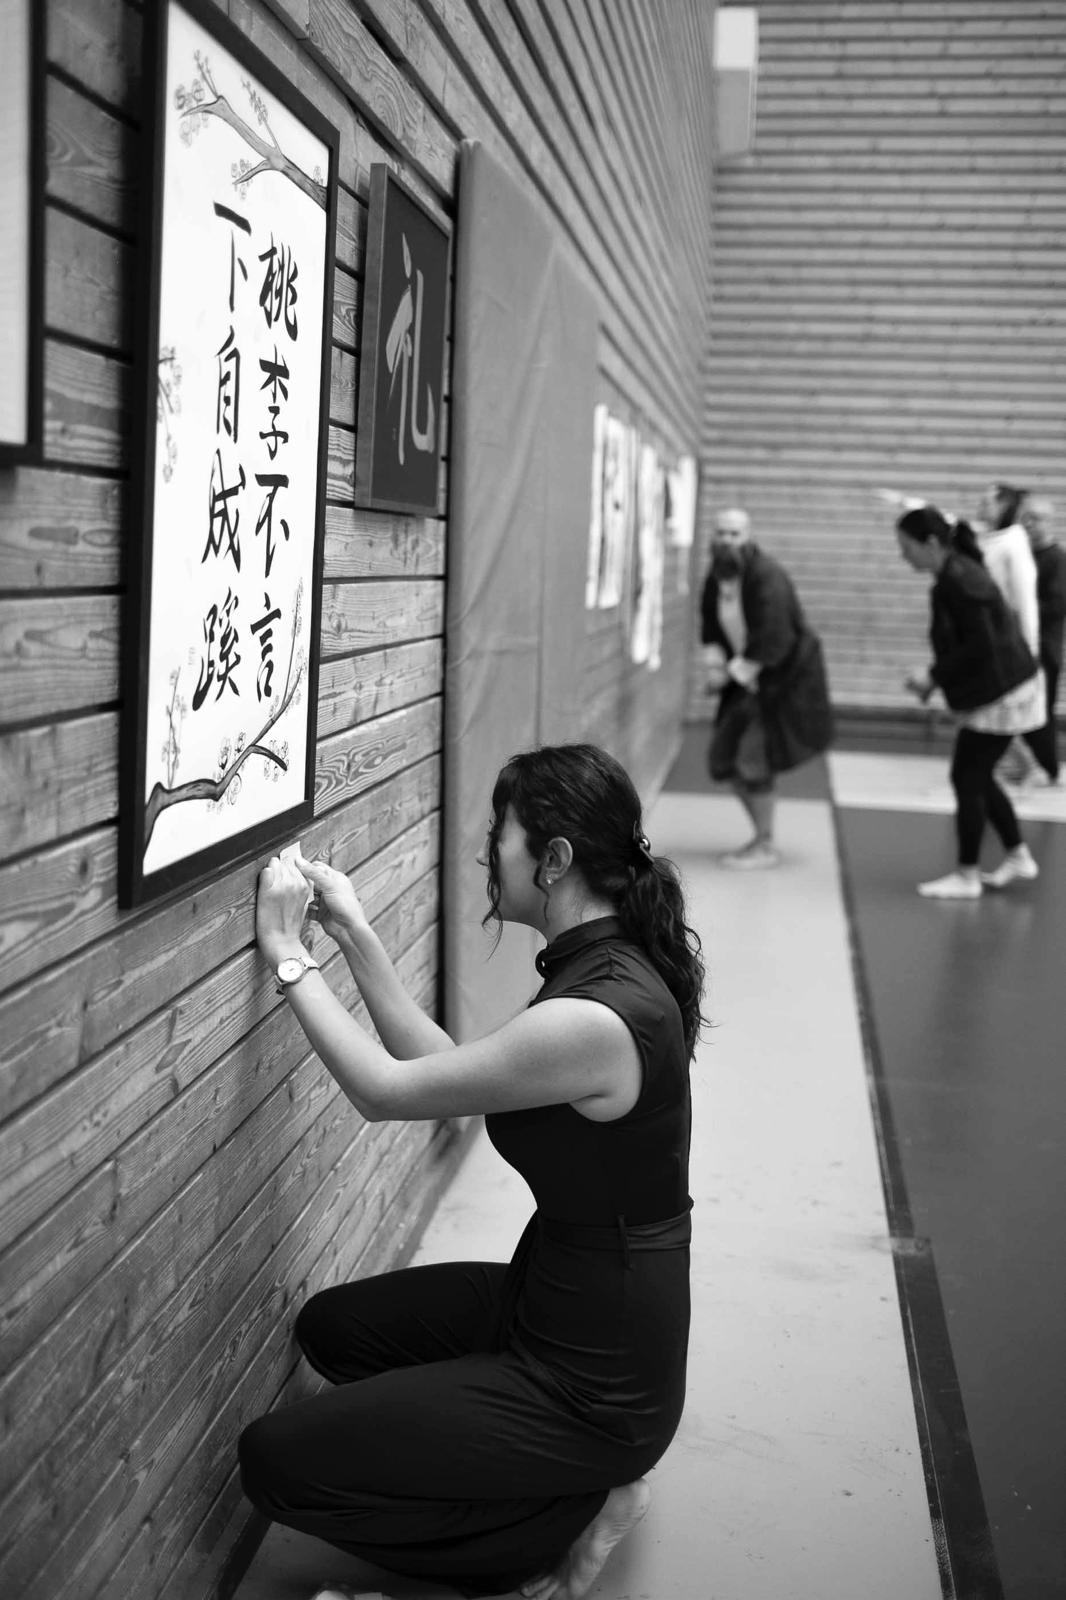 桃李不言
下自成蹊
礼